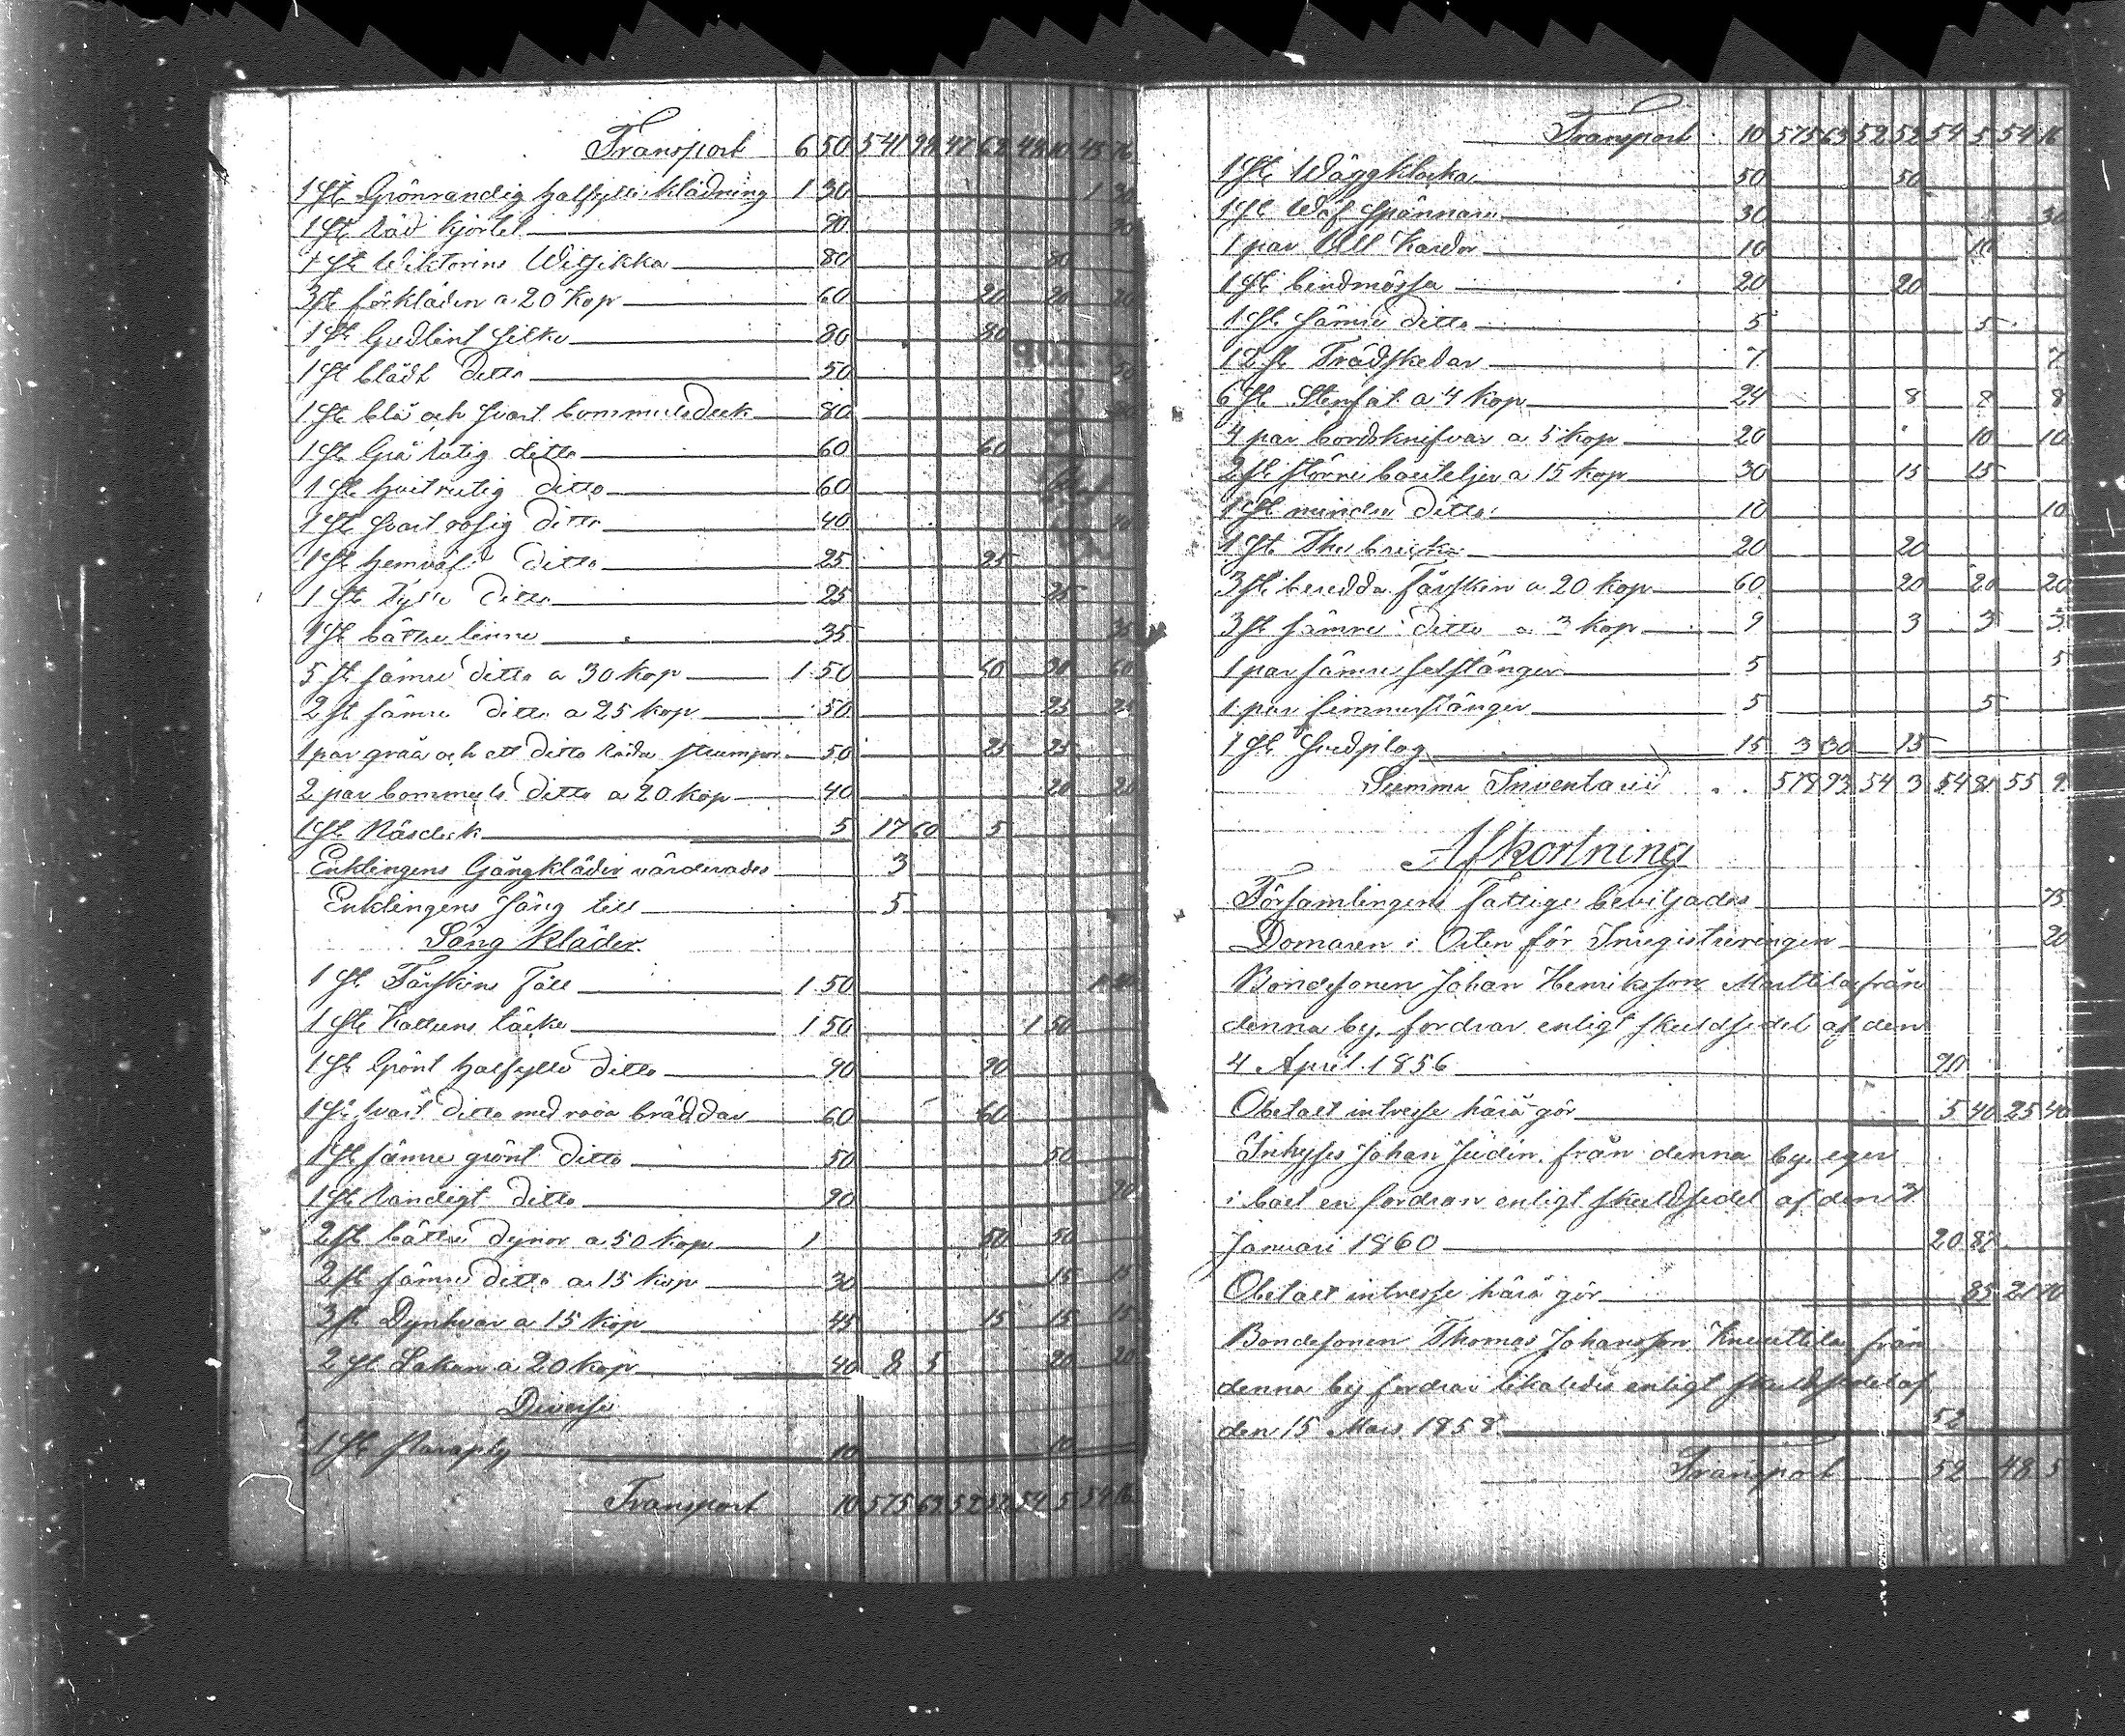 Transport 6 50 541 98 47 62 48 10 45 76
1 st. Grönrandig halfylle klädning 1 30 1 30
1 st. Röd kjortel 90 90
1 st. Wiktorins 80 80
3 st. förkläden a 20 Kop 60 20 20 20
1 st. silke 80 80
1 st. blådt Ditto 50 50
1 st. blå och svart bommulls duk 80 80
1 st. Grå rutig ditto 60 60
1 st. hvit rutig Ditto 60
1 st. svart rosig Ditto 40 40
1 st. hemväfd Ditto 25 25
1 st. Ditto 25 25
1 st. bättre linne 35 35
5 st. sämre ditto a 30 Kop 1 50 60 30 60
2 st. sämre Ditto a 25 Kop 50 25 25
1 par gråa och ett Ditto Röda strumpor 50 25 25
2 par bommuls Ditto a 20 Kop 40 20 20
1 st. Näsduk 5 17 60 5
Enklingens Gångkläder värderades 3
Enklingens säng till 5
Säng Kläder.
1 st. Fårskins Fäll 1 50 1 50
1 st. Kattuns täcke 1 50 1 50
1 st. Grönt halfylle Ditto 90 90
1 st. svart Ditto med röda bräddar 60 60
1 st. sämre grönt Ditto 50 50
1 st. Randigt Ditto 90 90
2 st. bättre Dynor a 50 Kop 1 50 50
2 st. sämre Ditto a 15 Kop 30 15 15
3 st. Dynhvar a 15 Kop 45 15 15 15
2 st. Lakan a 20 Kop 40 8 5 20 20
Diverse
1 st. Paraply 10 10
Transport 10 575 63 52 52 54 5 54 16
Transport 10 575 63 52 52 54 5 54 16
1 st. Wäggklocka 50 50
1 st. Wäf spännare 30 30
1 par Ull Kardor 10 10
1 st. bindmössa 20 20
1 st. sämre ditto 5 5
12 st. Trädskedar 7 7
6 st. Stenfat a 4 Kop 24 8 8 8
4 par bordsknifvar a 5 Kop 20 10 10
2 st. större bouteljer a 15 Kop 30 15 15
1 st. mindre Ditto 10 10
1 st. The bricka 20 20
3 st. beredda Fårskin a 20 Kop 60 20 20 20
3 st. sämre Ditto a 3 Kop 9 3 3 3
1 par sämre selstänger 5 5
1 par timmerstänger 5 5
1 st. Gredplog 15 3 30 15
Summa Inventarii 578 93 54 3 54 81 55 9
Afkortning
Församlingens Fattige beviljades 75
Domaren i Orten för Inregistreringen 20
Bondesonen Johan Henriksson Marttila från
denna by, fordrar enligt skuldsedel af den
4 April 1856 20
Obetalt intresse härå gör 5 40 25 40
Inhyses Johan Judin från denna by eger
i boet en fordran enligt skuldsedel af den 3
Januari 1860 20 87
Obetalt intresse härå gör 83 21 70
Bondesonen Thomas Johansson Knuuttila från
denna by fordrar likaledes enligt skuldsedel af
den 15 Mars 1858 52
Transport 52 48 5